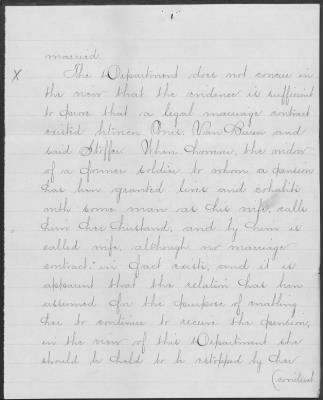 married.
X The Department does not concur in
the view that the evidence is sufficient
to prove that a legal marriage contract
existed between Mrs. Van Buren and
said Stoffer. When however, the widow
of a former soldier to whom a pension
has been granted lives and cohabits
with some man as his wife, calls
him her husband, and by him is
called wife, although no marriage
contract in fact exists, and it is
apparent that the relation has been
assumed for the purpose of enabling
her to continue to receive the pension,
in the view of this Department she
should be held to be estopped by her
(conduct